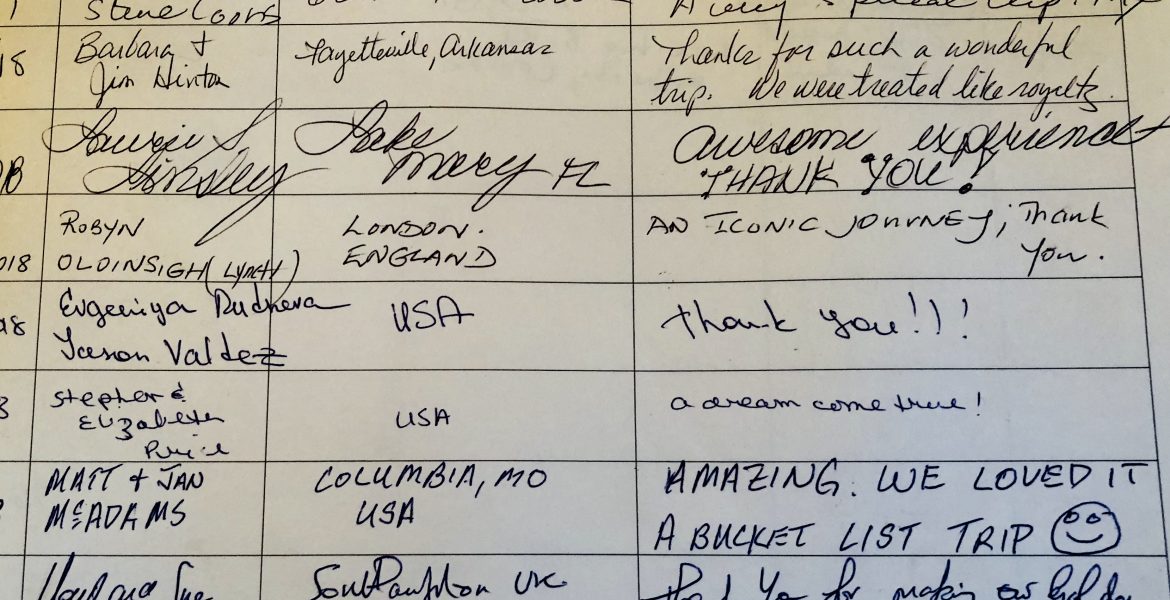 Steve Coors
18 Barbara & Fayetteville, Arkansas Thanks for such a wonderful
Jim Hinton trip. We were treated like royalty.
Laurie S. Lake awesome experience
Hinsley Mary FL THANK YOU!
ROBYN LONDON. AN ICONIC JOURNEY; Thank
018 OLDINSIGH (LYNCH) ENGLAND You.
18 Evgeniya Dudneva USA Thank you!!!
Jason Valdez
3 Stephen & USA a dream come true!
Elizabeth
Price
MATT & JAN COLUMBIA, MO AMAZING. WE LOVED IT
McADAMS USA A BUCKET LIST TRIP
Southampton UK Thank You for making our